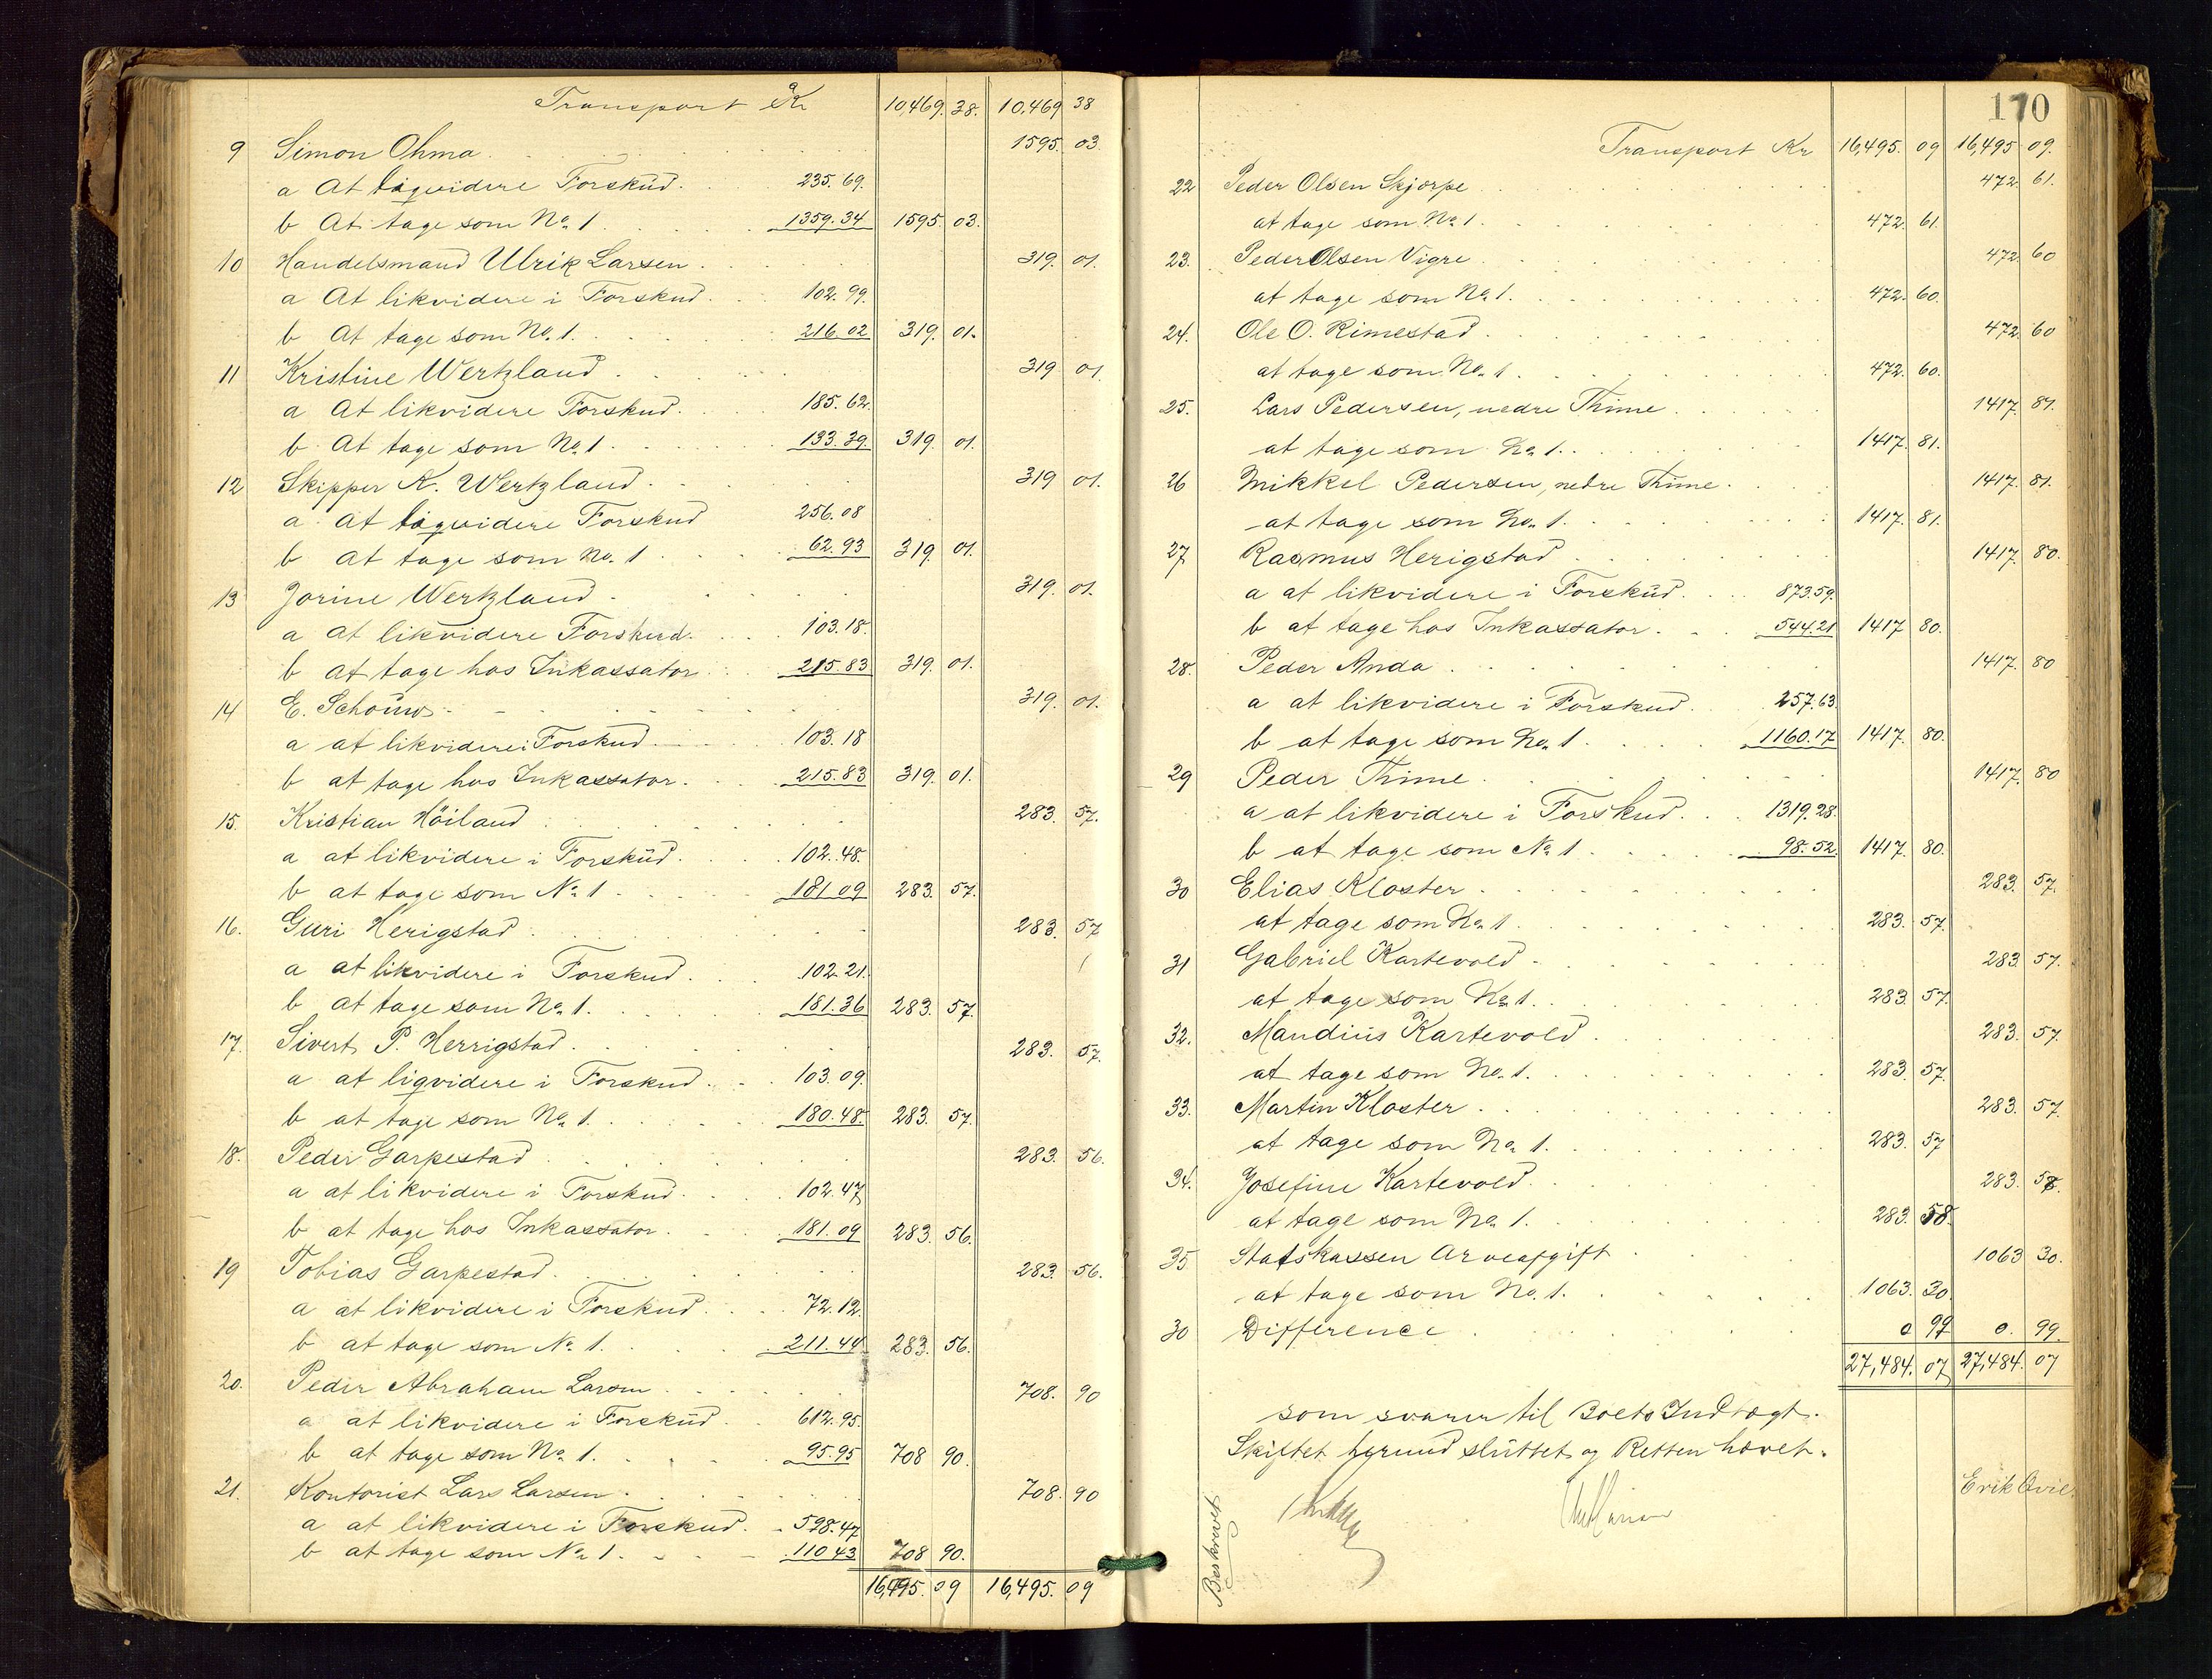 Transport Kr 10,469. 38. 10,469 38
9 Simon Ohma. 1595. 03
a At liqvidere Forskud. 235. 69.
b At tage som No. 1. 1359. 34 1595. 03.
10 Handelsmand Ulrik Larsen. 319. 01.
a At likvidere i Forskud. 102. 99.
b At tage som No. 1. 216. 02 319. 01.
11 Kristine Wertzland. 319 01.
a At likvidere Forskud. 185. 62.
b At tage som No. 1. 133. 39. 319. 01.
12 Skipper K. Wertzland. 319 01.
a At liqvidere Forskud 256. 08
b At tage som No. 1. 62. 93 319. 01.
13 Jorine Wertzland. 319. 01.
a At likvidere Forskud. 103. 18.
b At tage hos Inkassator. 215. 83 319. 01.
14 E. Schouw. 319. 01.
a at likvidere i Forskud. 103. 18
b at tage hos Inkassator. 215. 83 319. 01.
15. Kristian Höiland 283. 57.
a at likvidere i Forskud. 102. 48.
b at tage som No. 1. 181 09 283. 57.
16. Guri Herigstad. 283. 57
a at likvidere i Forskud. 102. 21.
b at tage som No. 1. 181. 36 283. 57.
17. Sivert P. Herrigstad. 283. 57.
a at liqvidere i Forskud. 103. 09.
b at tage som No. 1. 180. 48. 283 57.
18. Peder Garpestad. 283. 56.
a at likvidere i Forskud. 102. 47
b at tage hos Inkassator. 181. 09 283. 56.
19 Tobias Garpestad. 283. 56.
a at likvidere i Forskud. 72. 12.
b at tage som No. 1. 211. 44 283. 56.
20. Peder Abraham Larsen. 708. 90
a at likvidere i Forskud. 612. 95.
b at tage som No. 1. 95. 95 708 90.
21. Kontorist Lars Larsen. 708. 90
a at likvidere i Forskud. 598. 47
b at tage som No. 1. 110 43 708 90.
16,495. 09 16,495. 09
170
Transport Kr 16,495. 09 16,495 09.
22 Peder Olsen Skjørpe 472. 61.
at tage som No. 1. 472. 61.
23. Peder Olsen Vigre 472. 60
at tage som No. 1. 472. 60.
24. Ole O. Rimestad. 472 60
at tage som No. 1. 472. 60.
25. Lars Pedersen, nedre Thime. 1417. 81.
at tage som No. 1. 1417. 81.
26 Mikkel Pedersen, nedre Thime. 1417. 81.
at tage som No. 1. 1417. 81.
27 Rasmus Herigstad 1417. 80.
a at likvidere i Forskud. 873. 59.
b at tage hos Inkassator. 544. 21 1417 80.
28. Peder Anda 1417. 80
a at likvidere i Forskud. 257. 63.
b at tage som No. 1. 1160. 17 1417. 80.
29 Peder Thime 1417. 80
a at likvidere i Forskud. 1319. 28.
b at tage som No. 1. 98. 52 1417. 80.
30 Elias Kloster. 283. 57.
at tage som No. 1. 283. 57.
31 Gabriel Kartevold. 283 57.
at tage som No. 1. 283. 57.
32. Mandius Kartevold. 283. 57.
at tage som No. 1. 283. 57.
33. Martin Kloster. 283. 57.
at tage som No. 1. 283. 57
34. Josefine Kartevold. 283. 58.
at tage som No. 1. 283. 58.
35 Statskassen Arveafgift 1063 30.
at tage som No. 1. 1063. 30
30 Difference 0 99 0. 99.
27,484. 07 27,484. 07
som svarer til Boets Indtægt.
Skiftet herved sluttet og Retten hævet.
Beskrevet
Erik Qvie